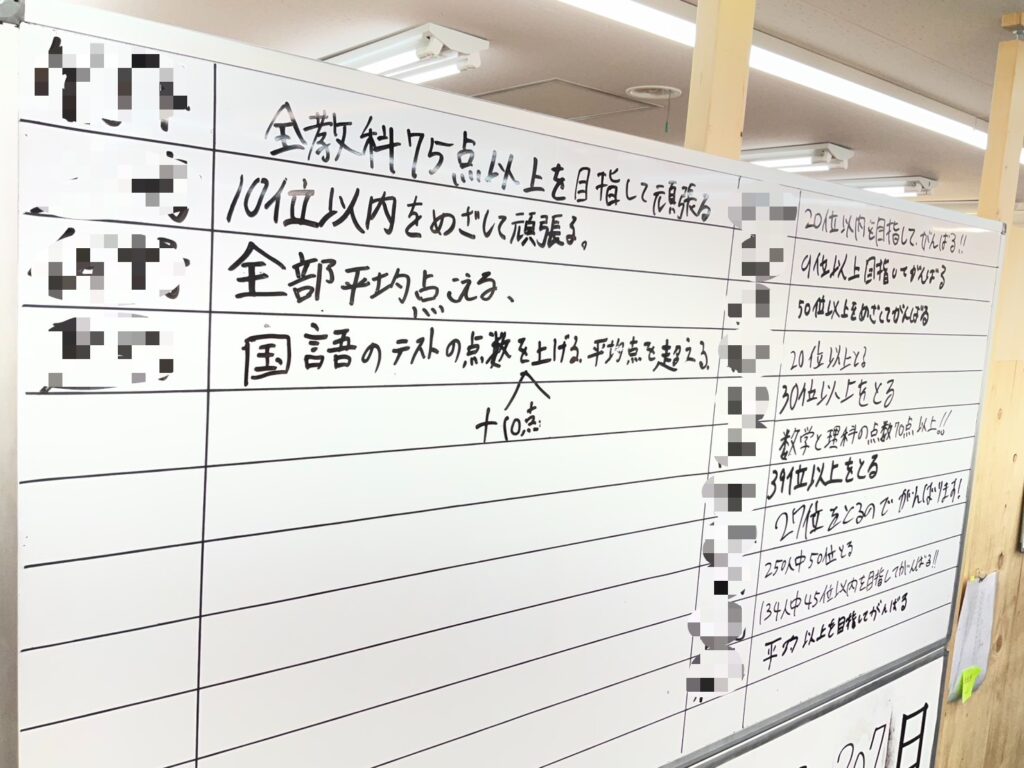 全教科75点以上を目指して頑張る
10位以内をめざして頑張る。
全部平均点こえる、
国語のテストの点数を上げる。平均点を超える。
+10点
20位以内を目指して、がんばる!!
9位以上目指してがんばる
50位以上をめざしてがんばる
20位以上とる
30位以上をとる
数学と理科の点数70点以上!!
39位以上をとる
27位をとるのでがんばります!
250人中50位とる
134人中45位以内を目指してがんばる!!
平均以上を目指してがんばる
207日